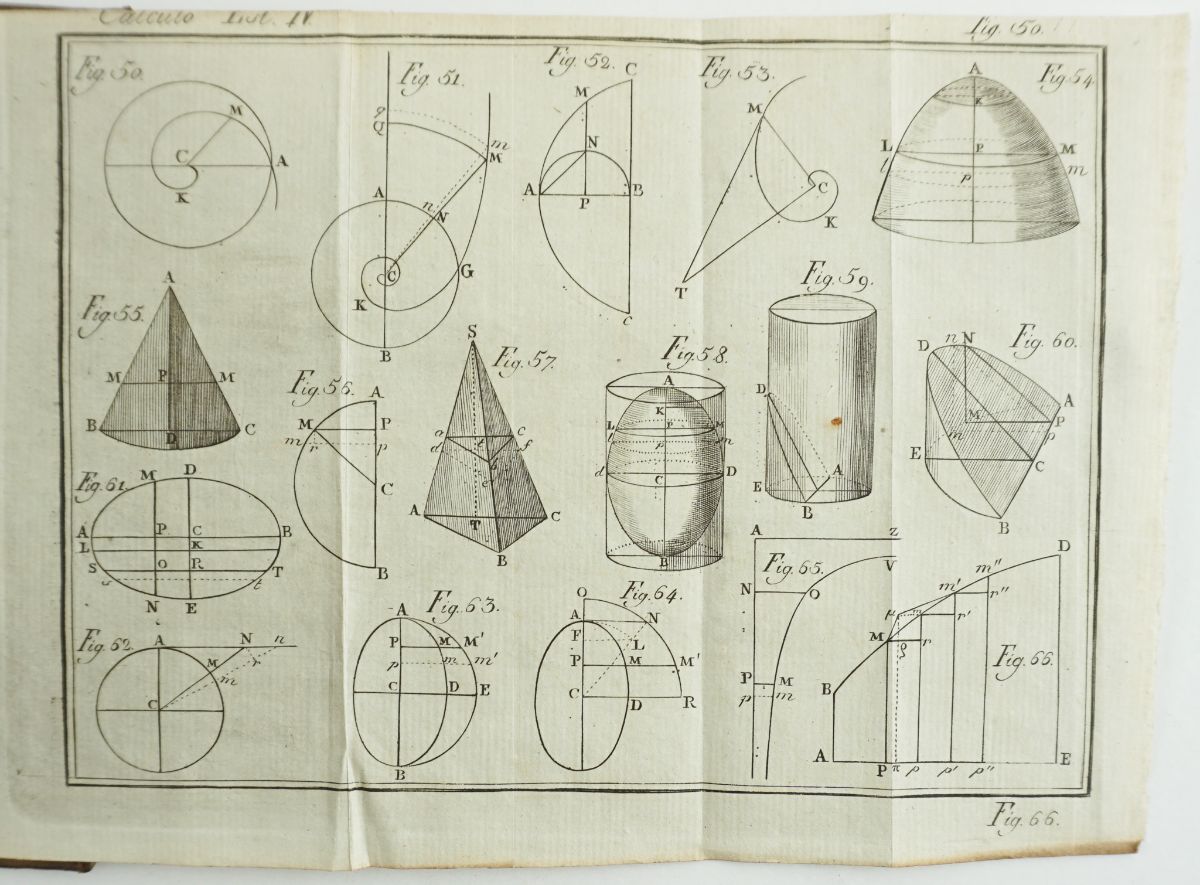 Calculo Est. IV.
Fig. 50.
Fig. 50.
M
C
A
K
Fig. 51.
q
Q
m
M
A
n
N
C
G
K
B
Fig. 52.
C
M
N
A
B
P
c
Fig. 53.
M
C
K
T
Fig. 54
A
K
L
P
M
l
p
m
Fig. 55.
A
M
P
M
B
D
C
Fig. 56.
A
M
P
m
r
p
C
B
Fig. 57.
S
a
t
c
d
f
b
e
A
T
C
B
Fig. 58.
A
K
L
P
M
l
p
m
d
C
D
B
Fig. 59.
D
A
E
B
Fig. 60.
D
n
N
A
M
P
m
p
E
C
B
Fig. 61.
M
D
A
P
C
B
L
K
S
O
R
T
s
t
N
E
Fig. 62.
A
N
n
M
r
m
C
Fig. 63.
A
P
M
M'
p
m
m'
C
D
E
B
Fig. 64.
O
A
N
F
L
P
M
M'
C
D
R
Fig. 65.
A
Z
V
N
O
P
M
p
m
Fig. 66.
D
m''
m'
r''
μ
m
r'
M
r
ρ
B
A
P
π
p
p'
p''
E
Fig. 66.